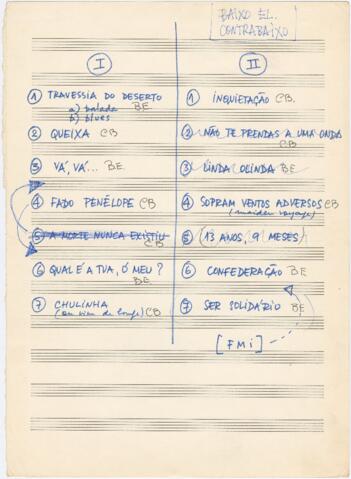 BAIXO EL.
CONTRABAIXO
I
1 TRAVESSIA DO DESERTO
a) balada B.E
b) blues
2 QUEIXA CB
3 VÁ, VÁ... B.E.
4 FADO PENÉLOPE CB
5 A MORTE NUNCA EXISTIU
CB
6 QUAL É A TUA, Ó MEU?
B.E.
7 CHULINHA
CB
II
1 INQUIETAÇÃO CB.
2 NÃO TE PRENDAS A UMA ONDA
CB
3 LINDA OLINDA B.E
4 SOPRAM VENTOS ADVERSOS CB
(maiden voyage)
5 (13 ANOS, 9 MESES)
6 CONFEDERAÇÃO B.E
7 SER SOLIDÁRIO B.E
[FMI]